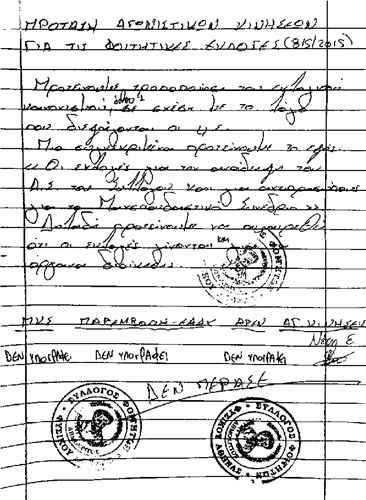 ΠΡΟΤΑΣΗ ΑΓΩΝΙΣΤΙΚΩΝ ΚΙΝΗΣΕΩΝ
ΓΙΑ ΤΙΣ ΦΟΙΤΗΤΙΚΕΣ ΕΚΛΟΓΕΣ (8/5/2015)
Προτείνουμε τροποποίηση του εκλογικού
κανονισμού, άρθρο 1 σε σχέση με το λόγο
που διεξάγονται οι
Πιο συγκεκριμένα προτείνουμε το εξής:
«Οι εκλογές για την ανάδειξη του
Δ.Σ του Συλλόγου και για αντιπροσώπους
για το Πανσπουδαστικό Συνέδριο»
Δηλαδή προτείνουμε να αφαιρεθεί
ότι οι εκλογές γίνονται και
όργανα διοίκησης.
ΠΚΣ ΠΑΡΕΜΒΑΣΗ-ΕΑΑΚ ΑΡΕΝ ΑΓ. ΚΙΝΗΣΕΙΣ
ΔΕΝ ΥΠΟΓΡΑΦΕΙ ΔΕΝ ΥΠΟΓΡΑΦΕΙ ΔΕΝ ΥΠΟΓΡΑΦΕΙ
ΔΕΝ ΠΕΡΑΣΕ
ΣΥΛΛΟΓΟΣ ΦΟΙΤΗΤΩΝ
ΣΥΛΛΟΓΟΣ ΦΟΙΤΗΤΩΝ